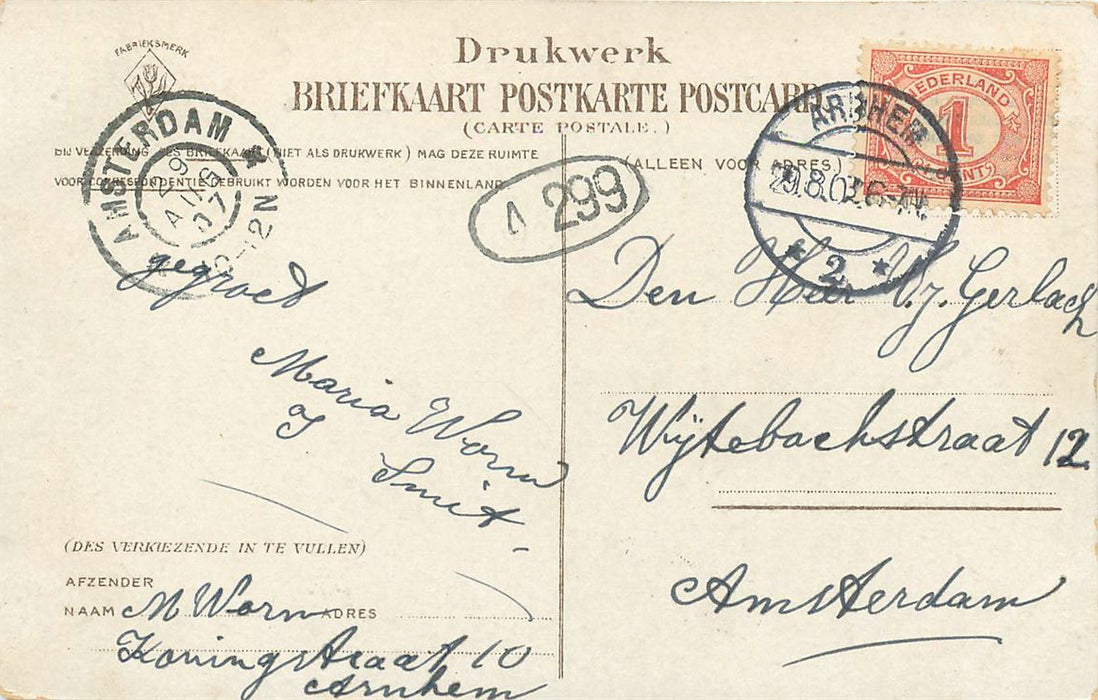 FABRIEKSMERK
Drukwerk
BRIEFKAART POSTKARTE POSTCARD
(CARTE POSTALE.)
NEDERLAND
1
CENT
ARNHEM
29.8.07 6-7N.
* 2 *
AMSTERDAM *
29 AUG 07
10-12N
BIJ VERZENDING DES BRIEFKAART (NIET ALS DRUKWERK) MAG DEZE RUIMTE
VOOR CORRESPONDENTIE GEBRUIKT WORDEN VOOR HET BINNENLAND
(ALLEEN VOOR ADRES)
A 299
gegroet
Maria Worm
Smit
Den Heer V.J. Gerlach
Wijtebachstraat 12
Amsterdam
(DES VERKIEZENDE IN TE VULLEN)
AFZENDER
NAAM M Worm ADRES
Koningstraat 10
Arnhem